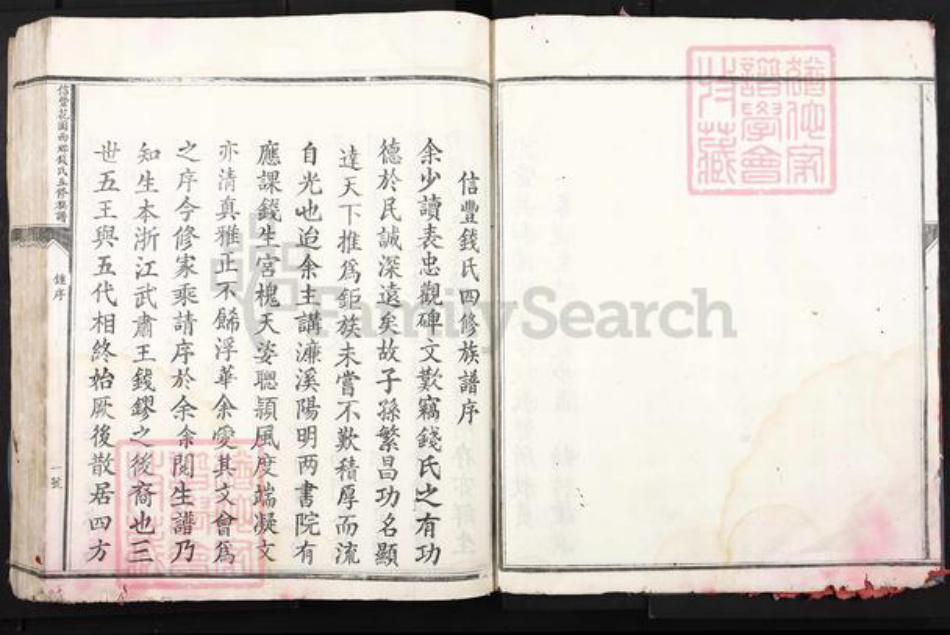 信豐錢氏四修族譜序
余少讀表忠觀碑文歎竊錢氏之有功
德於民誠深遠矣故子孫繁昌功名顯
達天下推為鉅族未嘗不歎積厚而流
自光也迨余主講濂溪陽明两書院有
應課錢生宮槐天姿聰頴風度端凝文
亦清真雅正不餙浮華余愛其文會為
之序今修家乘請序於余余閱生譜乃
知生本浙江武肅王錢鏐之後裔也三
世五王與五代相終始厥後散居四方
信豐花園西鄉錢氏五修族譜
鍾序
一號
FamilySearch
譜學會
珍藏